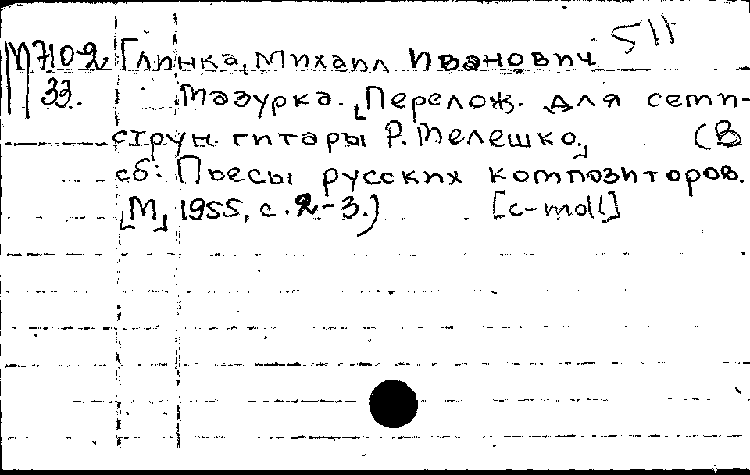 М710-2 Глинка, Михаил Иванович 511
33. Мазурка. [Перелож. для семи-
струн. гитары Р. Мелешко] (В
сб: Пьесы русских композиторов.
[М], 1955, с. 2-3.) [c-moll]